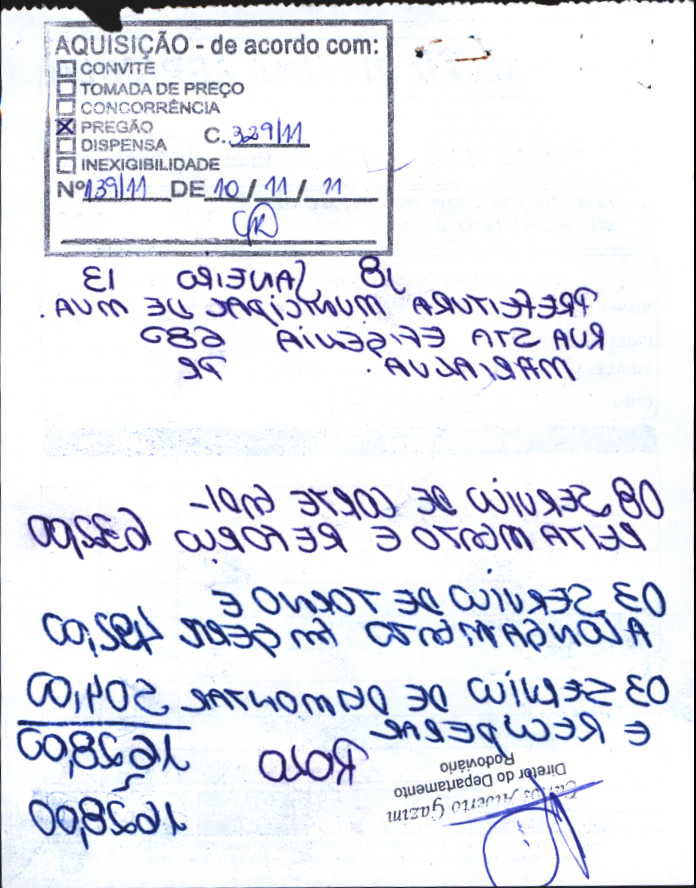 AQUISIÇÃO - de acordo com:
CONVITE
TOMADA DE PREÇO
CONCORRÊNCIA
PREGÃO
C. 329/11
DISPENSA
INEXIGIBILIDADE
Nº 139/11 DE 10 / 11 / 11
18 JANEIRO 13
PREFEITURA MUNICIPAL DE MVA.
RUA STA EFIGENIA 680
MARIALVA. PR
08 SERVIÇO DE CORTE
E REFORÇO 632,00
03 SERVIÇO DE TORNO E
ALONGAMENTO EM GERAL 492,00
03 SERVIÇO DE DESMONTAR 504,00
E RECUPERAR
1628,00
ROLO
1628,00
Carlos Alberto Gazim
Diretor do Departamento
Rodoviário